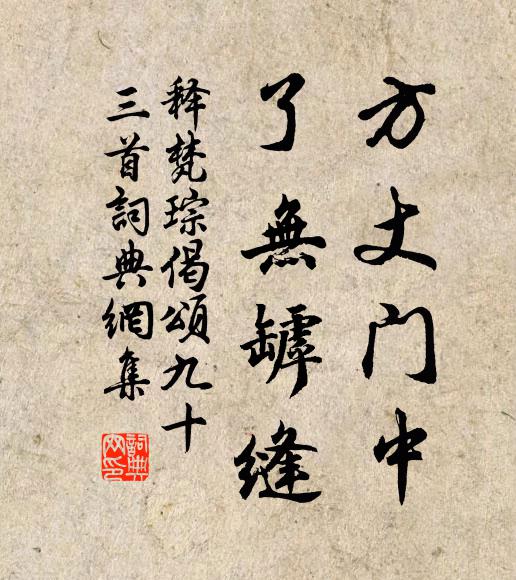 方丈门中
了無罅縫
释梵琮偈頌九十
三首詞典網集
詞典网印